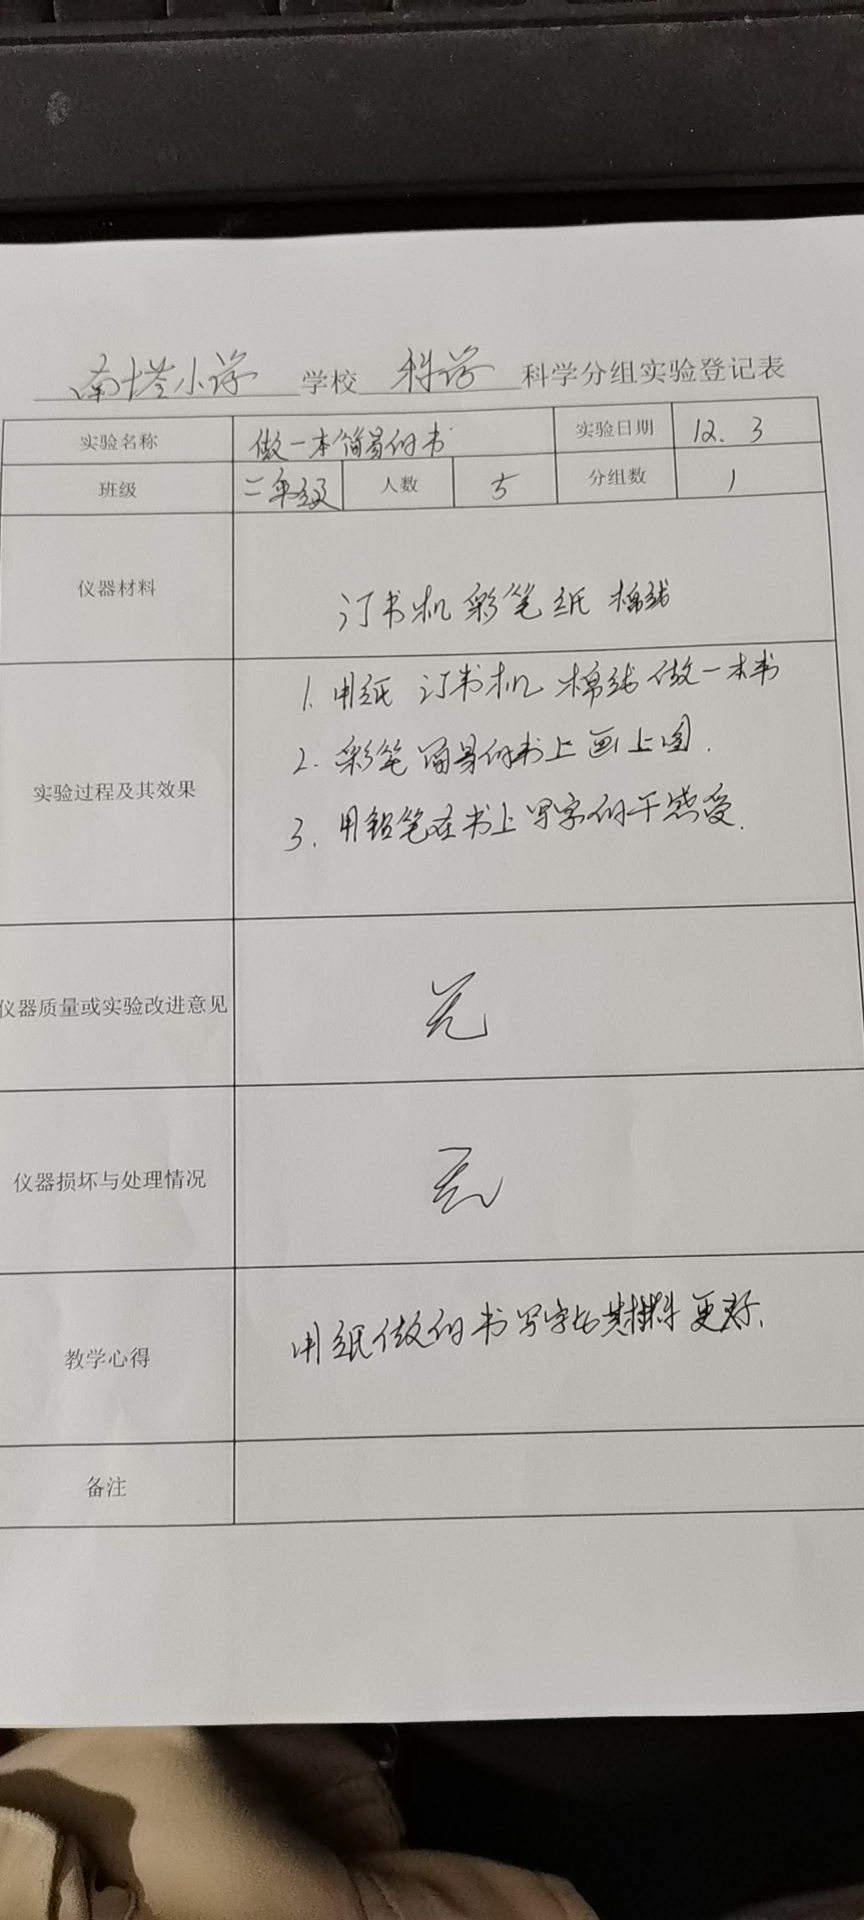 南塔小学 学校 科学 科学分组实验登记表
实验名称 做一本简易的书 实验日期 12.3
班级 二年级 人数 5 分组数 1
仪器材料 订书机 彩笔 纸 棉线
实验过程及其效果
1. 用纸 订书机 棉线做一本书
2. 彩笔 简易的书上画上图.
3. 用铅笔在书上写字的干感受.
仪器质量或实验改进意见 无
仪器损坏与处理情况 无
教学心得 用纸做的书写字比其材料更好.
备注